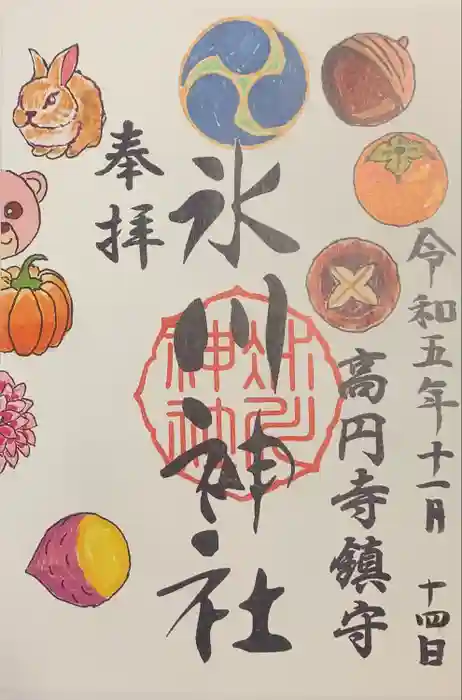 令和五年十一月 十四日
高円寺鎮守
氷川神社
奉拝
氷川神社